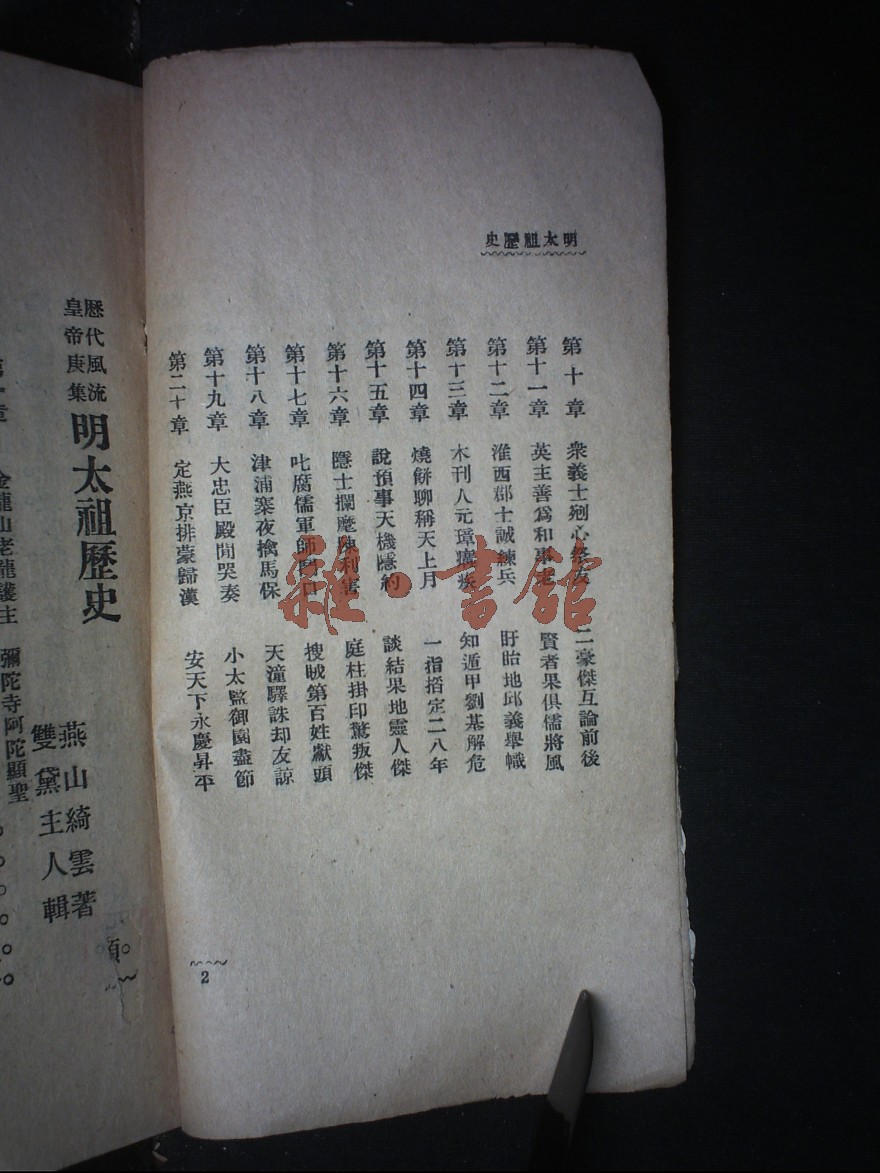 明太祖歷史
第十章 衆義士剜心祭友 二豪傑互論前後
第十一章 英主善爲和事老 賢者果俱儒將風
第十二章 淮西郡士誠練兵 盱眙地邱義舉幟
第十三章 木刊人元璋癘疾 知遁甲劉基解危
第十四章 燒餅聊稱天上月 一指掐定二八年
第十五章 說預事天機隱約 談結果地靈人傑
第十六章 隱士攔麾陳利害 庭柱掛印驚叛傑
第十七章 叱腐儒軍師鬥口 搜城第百姓獻頭
第十八章 津浦寨夜擒馬保 天潼驛誅却友諒
第十九章 大忠臣殿閒哭奏 小太監御園盡節
第二十章 定燕京排蒙歸漢 安天下永慶昇平
2
歷代風流
皇帝庚集
明太祖歷史
燕山綺雲著
雙黛主人輯
金龍山老龍護主 彌陀寺阿陀顯聖
雜·書館